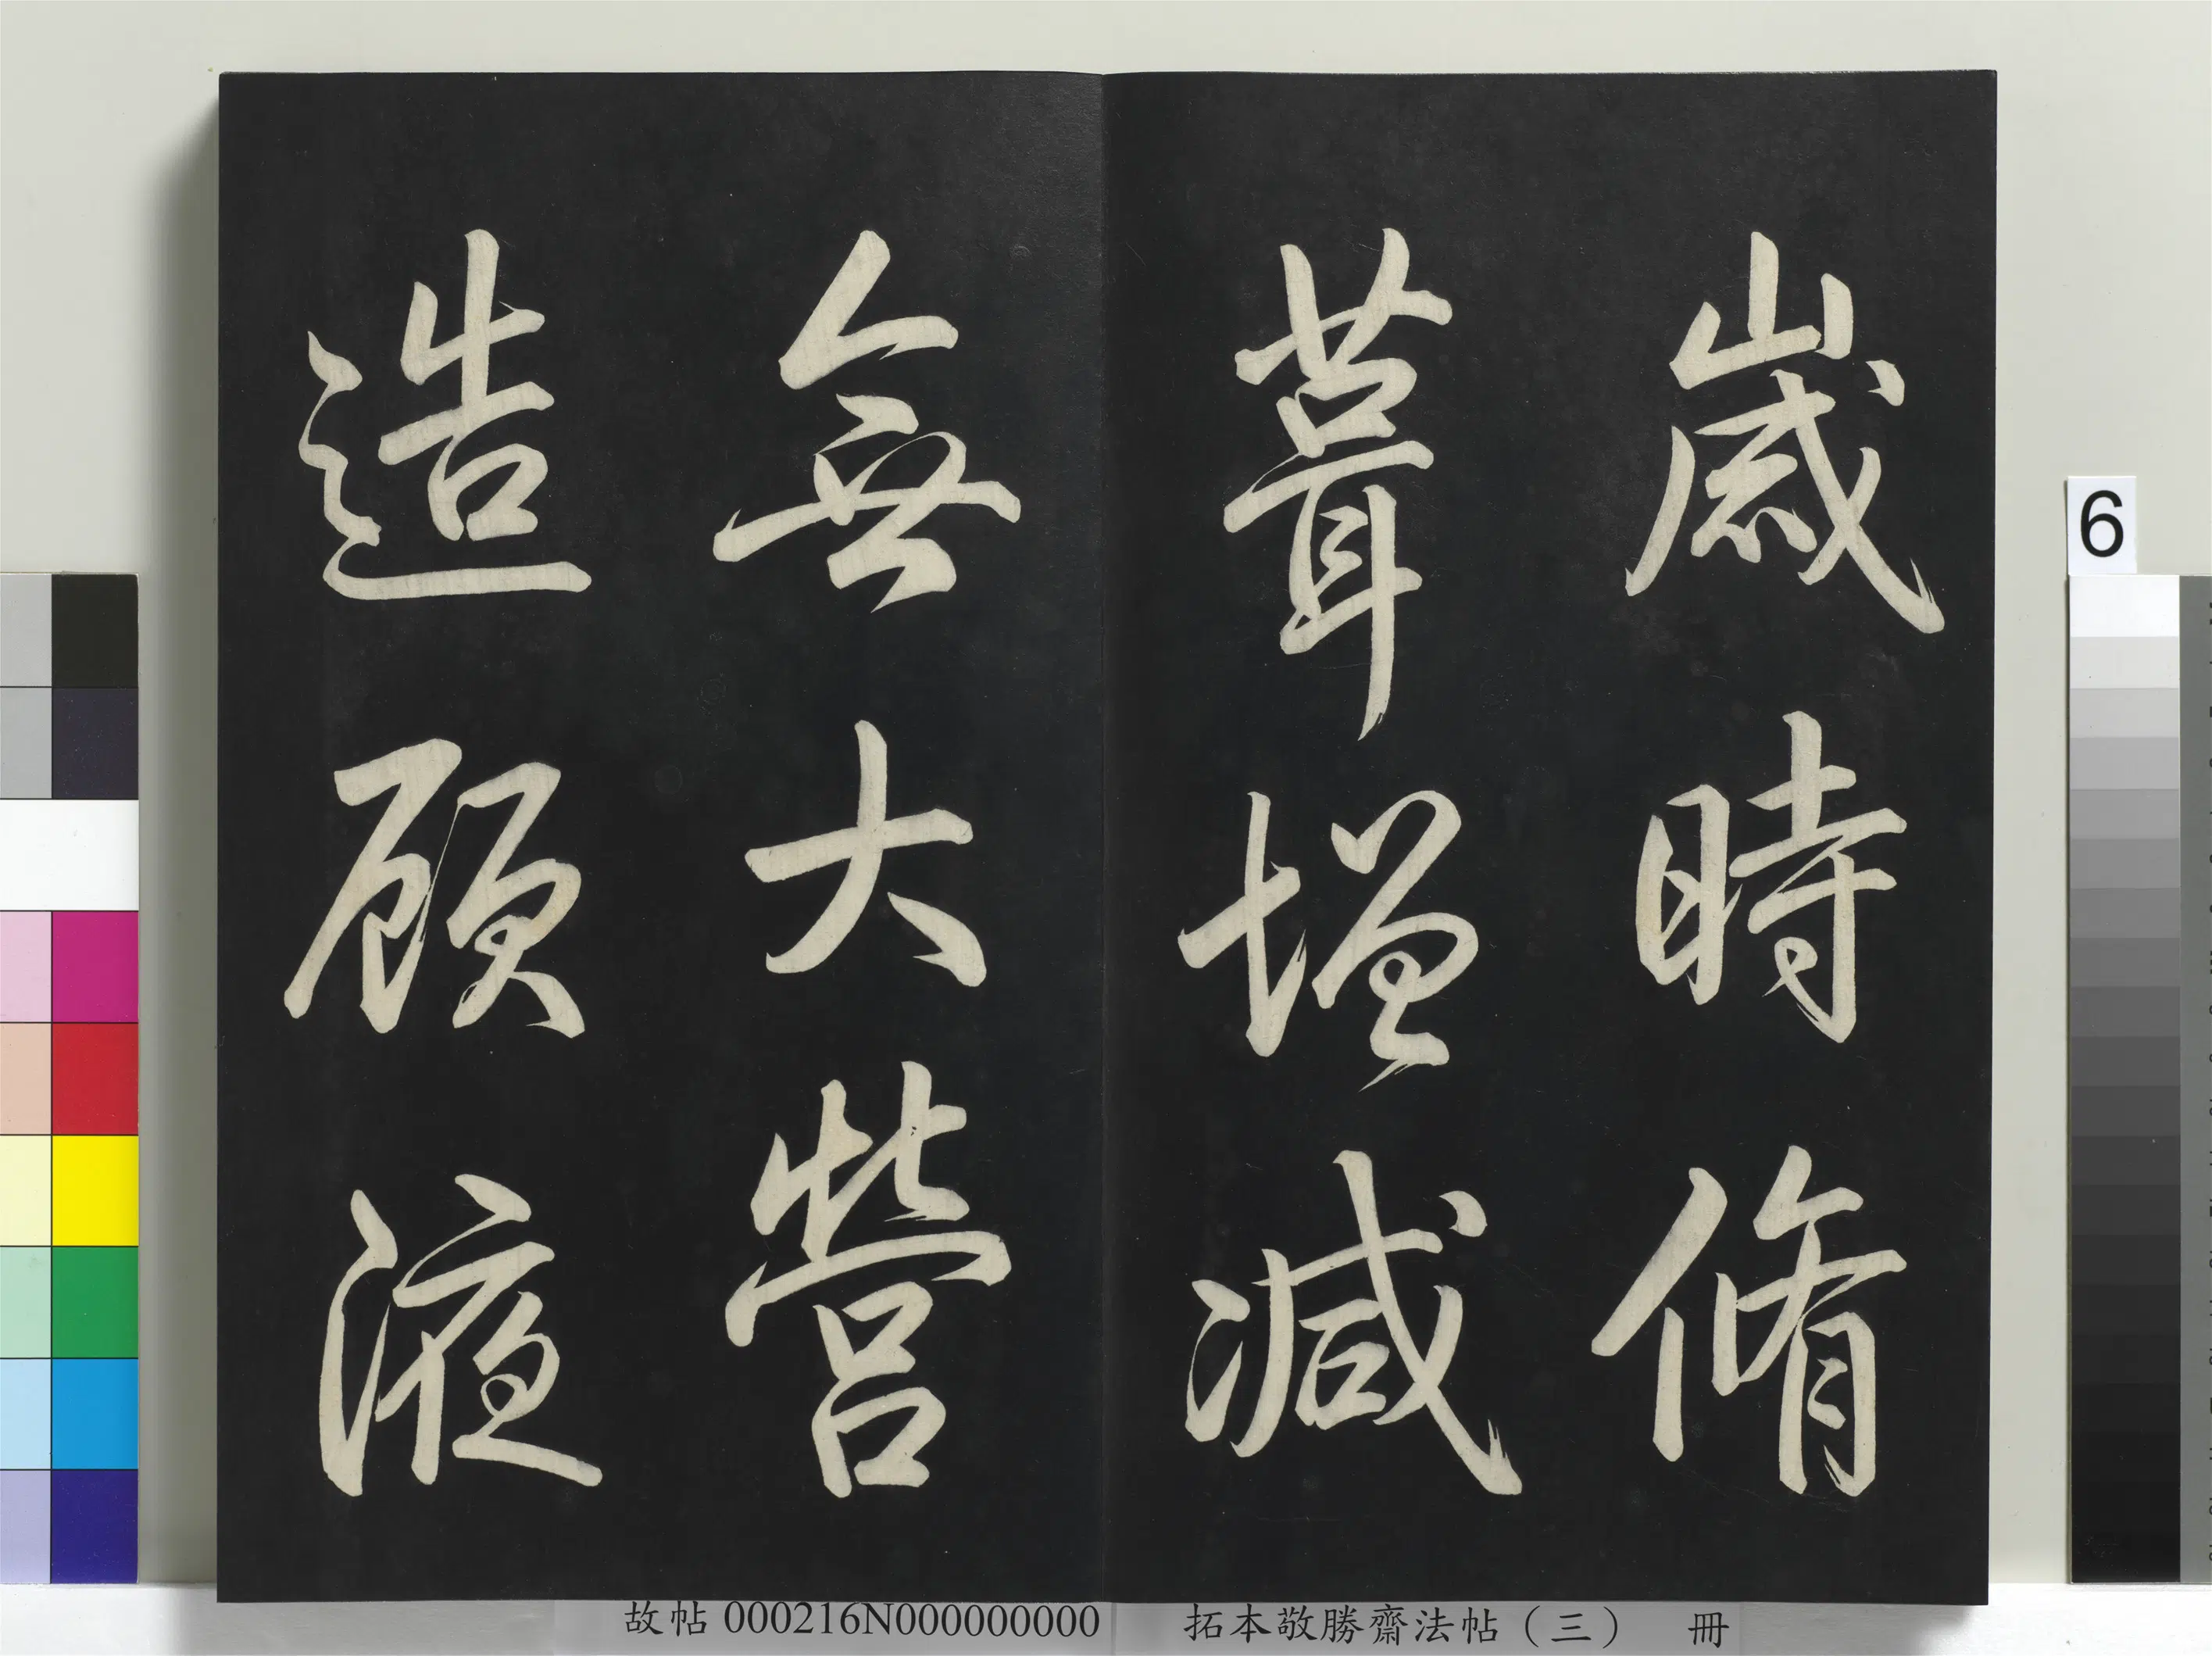 歲時脩
葺增減
無大營
造顧液
6
故帖000216N000000000 拓本敬勝齋法帖（三） 冊